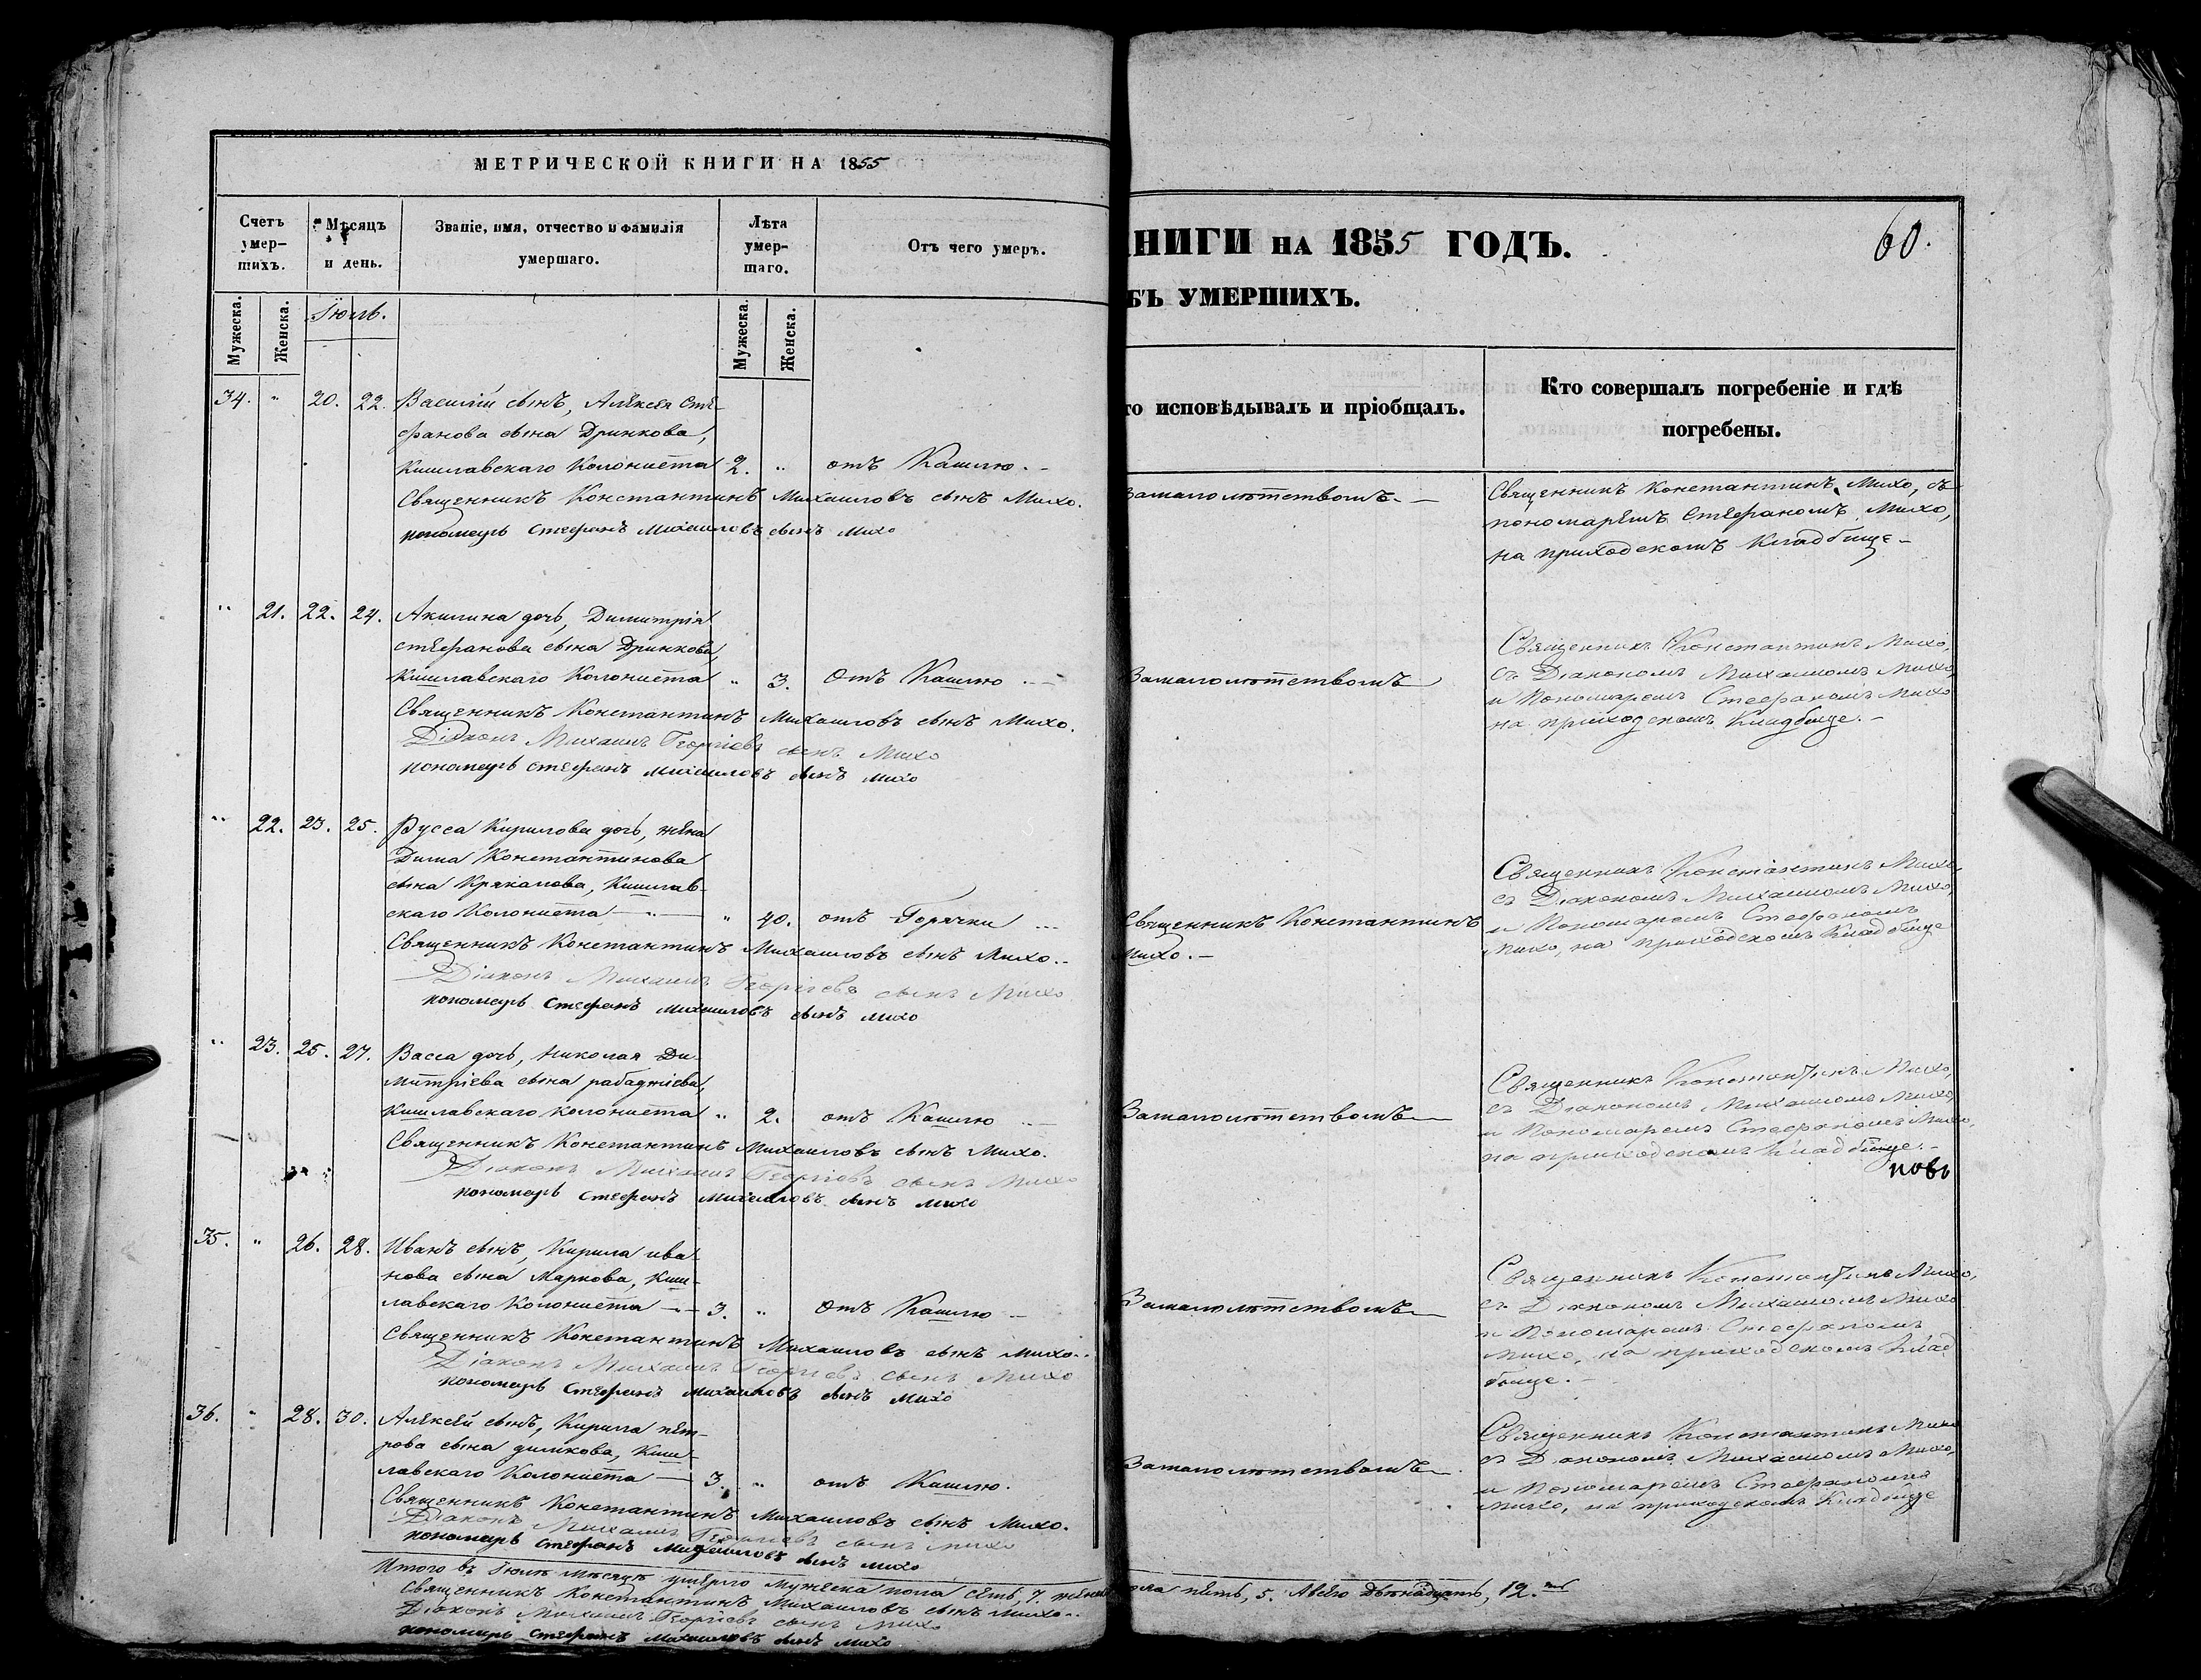 МЕТРИЧЕСКОЙ КНИГИ НА 1855
Счетъ умер-
шихъ.
Мѣсяцъ
и день.
Званіе, имя, отчество и фамилія
умершаго.
Лѣта
умер-
шаго.
Отъ чего умеръ.
Мужеска.
Женска.
Іюль.
Мужеска.
Женска.
34. " 20. 22. Василій сынъ, Алексея Сте-
фанова сына Дринкова,
Кишлавскаго Колониста 2. " отъ Кашлю. -
Священникъ Константинъ Михаиловъ сынъ Михо.
пономарь Стефанъ Михаиловъ сынъ Михо
" 21. 22. 24. Акилина дочь, Димитрія
Стефанова сына Дринкова,
Кишлавскаго Колониста " 3. Отъ Кашлю -
Священникъ Константинъ Михаиловъ сынъ Михо.
Діаконъ Михаилъ Георгіевъ сынъ Михо
пономарь Стефанъ Михаиловъ сынъ Михо
" 22. 23. 25. Русса Кирилова дочь, жена
Дима Константинова
сына Кракалова, Кишлав-
скаго Колониста — " 40. отъ Горячки ...
Священникъ Константинъ Михаиловъ сынъ Михо.-
Діаконъ Михаилъ Георгіевъ сынъ Михо
пономарь Стефанъ Михаиловъ сынъ Михо
" 23. 25. 27. Васса дочь, Николая Ди-
митріева сына рабаджіева,
Кишлавскаго Колониста " 2. отъ Кашлю -
Священникъ Константинъ Михаиловъ сынъ Михо.
Діаконъ Михаилъ Георгіевъ сынъ Михо
пономарь Стефанъ Михаиловъ сынъ Михо
35. " 26. 28. Иванъ сынъ, Кирила ива-
нова сына Маркова, Киш-
лавскаго Колониста — 3. " Отъ Кашлю -
Священникъ Константинъ Михаиловъ сынъ Михо..
Діаконъ Михаилъ Георгіевъ сынъ Михо
пономарь Стефанъ Михаиловъ сынъ Михо
36. " 28. 30. Алексей сынъ, Кирила пет-
рова сына димкова, Киш-
лавскаго Колониста — 3. " отъ Кашлю.
Священникъ Константинъ Михаиловъ сынъ Михо.
Діаконъ Михаилъ Георгіевъ сынъ Михо
пономарь Стефанъ Михаиловъ сынъ Михо
Итого въ Іюлѣ мѣсяцѣ умерло Мужеска пола семь, 7. женска
Священникъ Константинъ Михаиловъ сынъ Михо..
Діаконъ Михаилъ Георгіевъ сынъ Михо
пономарь Стефанъ Михаиловъ сынъ Михо
НИГИ НА 1855 ГОДЪ.
60.
БЪ УМЕРШИХЪ.
то исповѣдывалъ и пріобщалъ.
Кто совершалъ погребеніе и гдѣ
погребены.
Замалолѣтствомъ. —
Священникъ Константинъ Михо, съ
пономаремъ Стефаномъ Михо,
на приходскомъ Кладбище -
Замалолѣтствомъ
Священникъ Константинъ Михо,
съ Діакономъ Михаиломъ Михо,
и Пономаремъ Стефаномъ Михо
на приходскомъ Кладбище. -
Священникъ Константинъ
Михо. -
Священникъ Константинъ Михо,
съ Діакономъ Михаиломъ Михо,
и Пономаремъ Стефаномъ
Михо, на приходскомъ Кладбище
Замалолѣтствомъ —
Священникъ Константинъ Михо,
съ Діакономъ Михаиломъ Михо,
и Пономаремъ Стефаномъ Михо,
на приходскомъ Кладбище. -
Замалолѣтствомъ —
Священникъ Константинъ Михо,
съ Діакономъ Михаиломъ Михо
и Пономаремъ Стефаномъ
Михо, на приходскомъ Клад
бище. -
Замалолѣтствомъ —
Священникъ Константинъ Михо
съ Діакономъ Михаиломъ Михо,
и Пономаремъ Стефаномъ
Михо, на приходскомъ Кладбище
ола пять, 5. А всего двѣнадцать, 12.